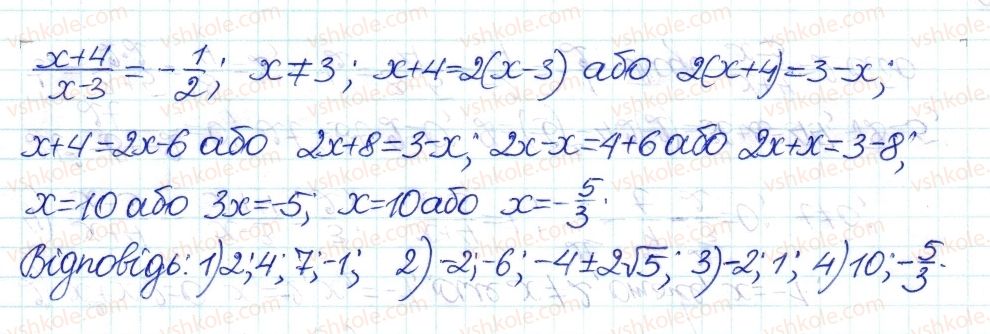 (x+4)/(x-3) = -1/2; x≠3; x+4=2(x-3) або 2(x+4)=3-x;
x+4=2x-6 або 2x+8=3-x; 2x-x=4+6 або 2x+x=3-8;
x=10 або 3x=-5; x=10 або x=-5/3.
Відповідь: 1) 2; 4; 7; -1; 2) -2; -6; -4±2√5; 3) -2; 1; 4) 10; -5/3.